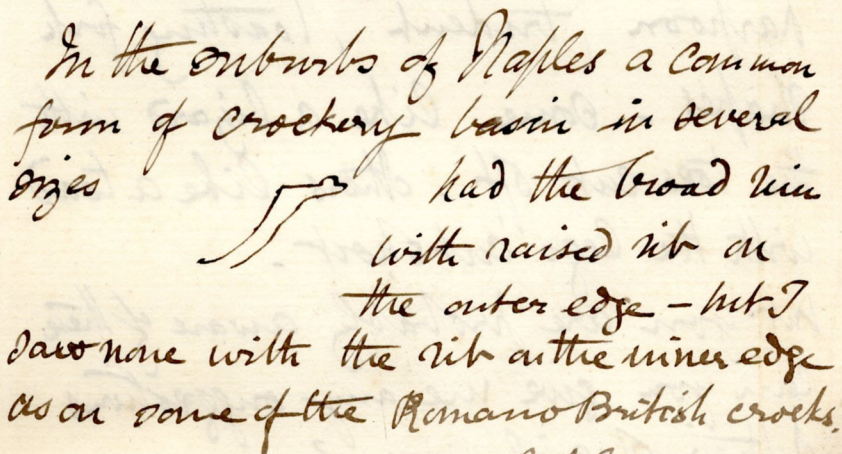 In the suburbs of Naples a common
form of crockery basin in several
sizes had the broad rim
with raised rib on
the outer edge – but I
saw none with the rib on the inner edge
as on some of the Romano British crocks.